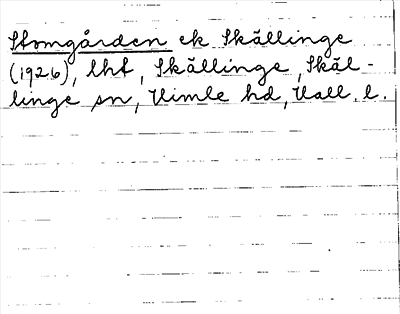 Stomgården ek Skällinge
(1926), lht, Skällinge, Skäl-
linge sn, Himle hd, Hall. l.